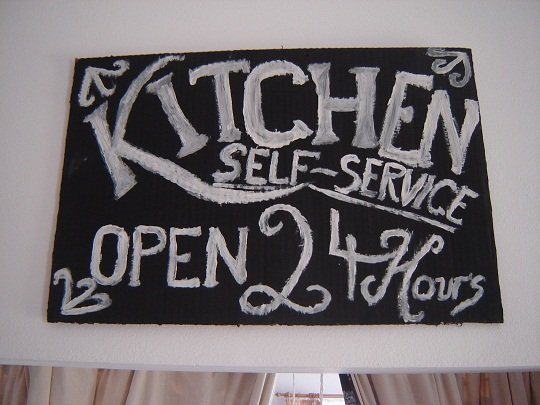 KITCHEN
SELF-SERVICE
OPEN 24 Hours